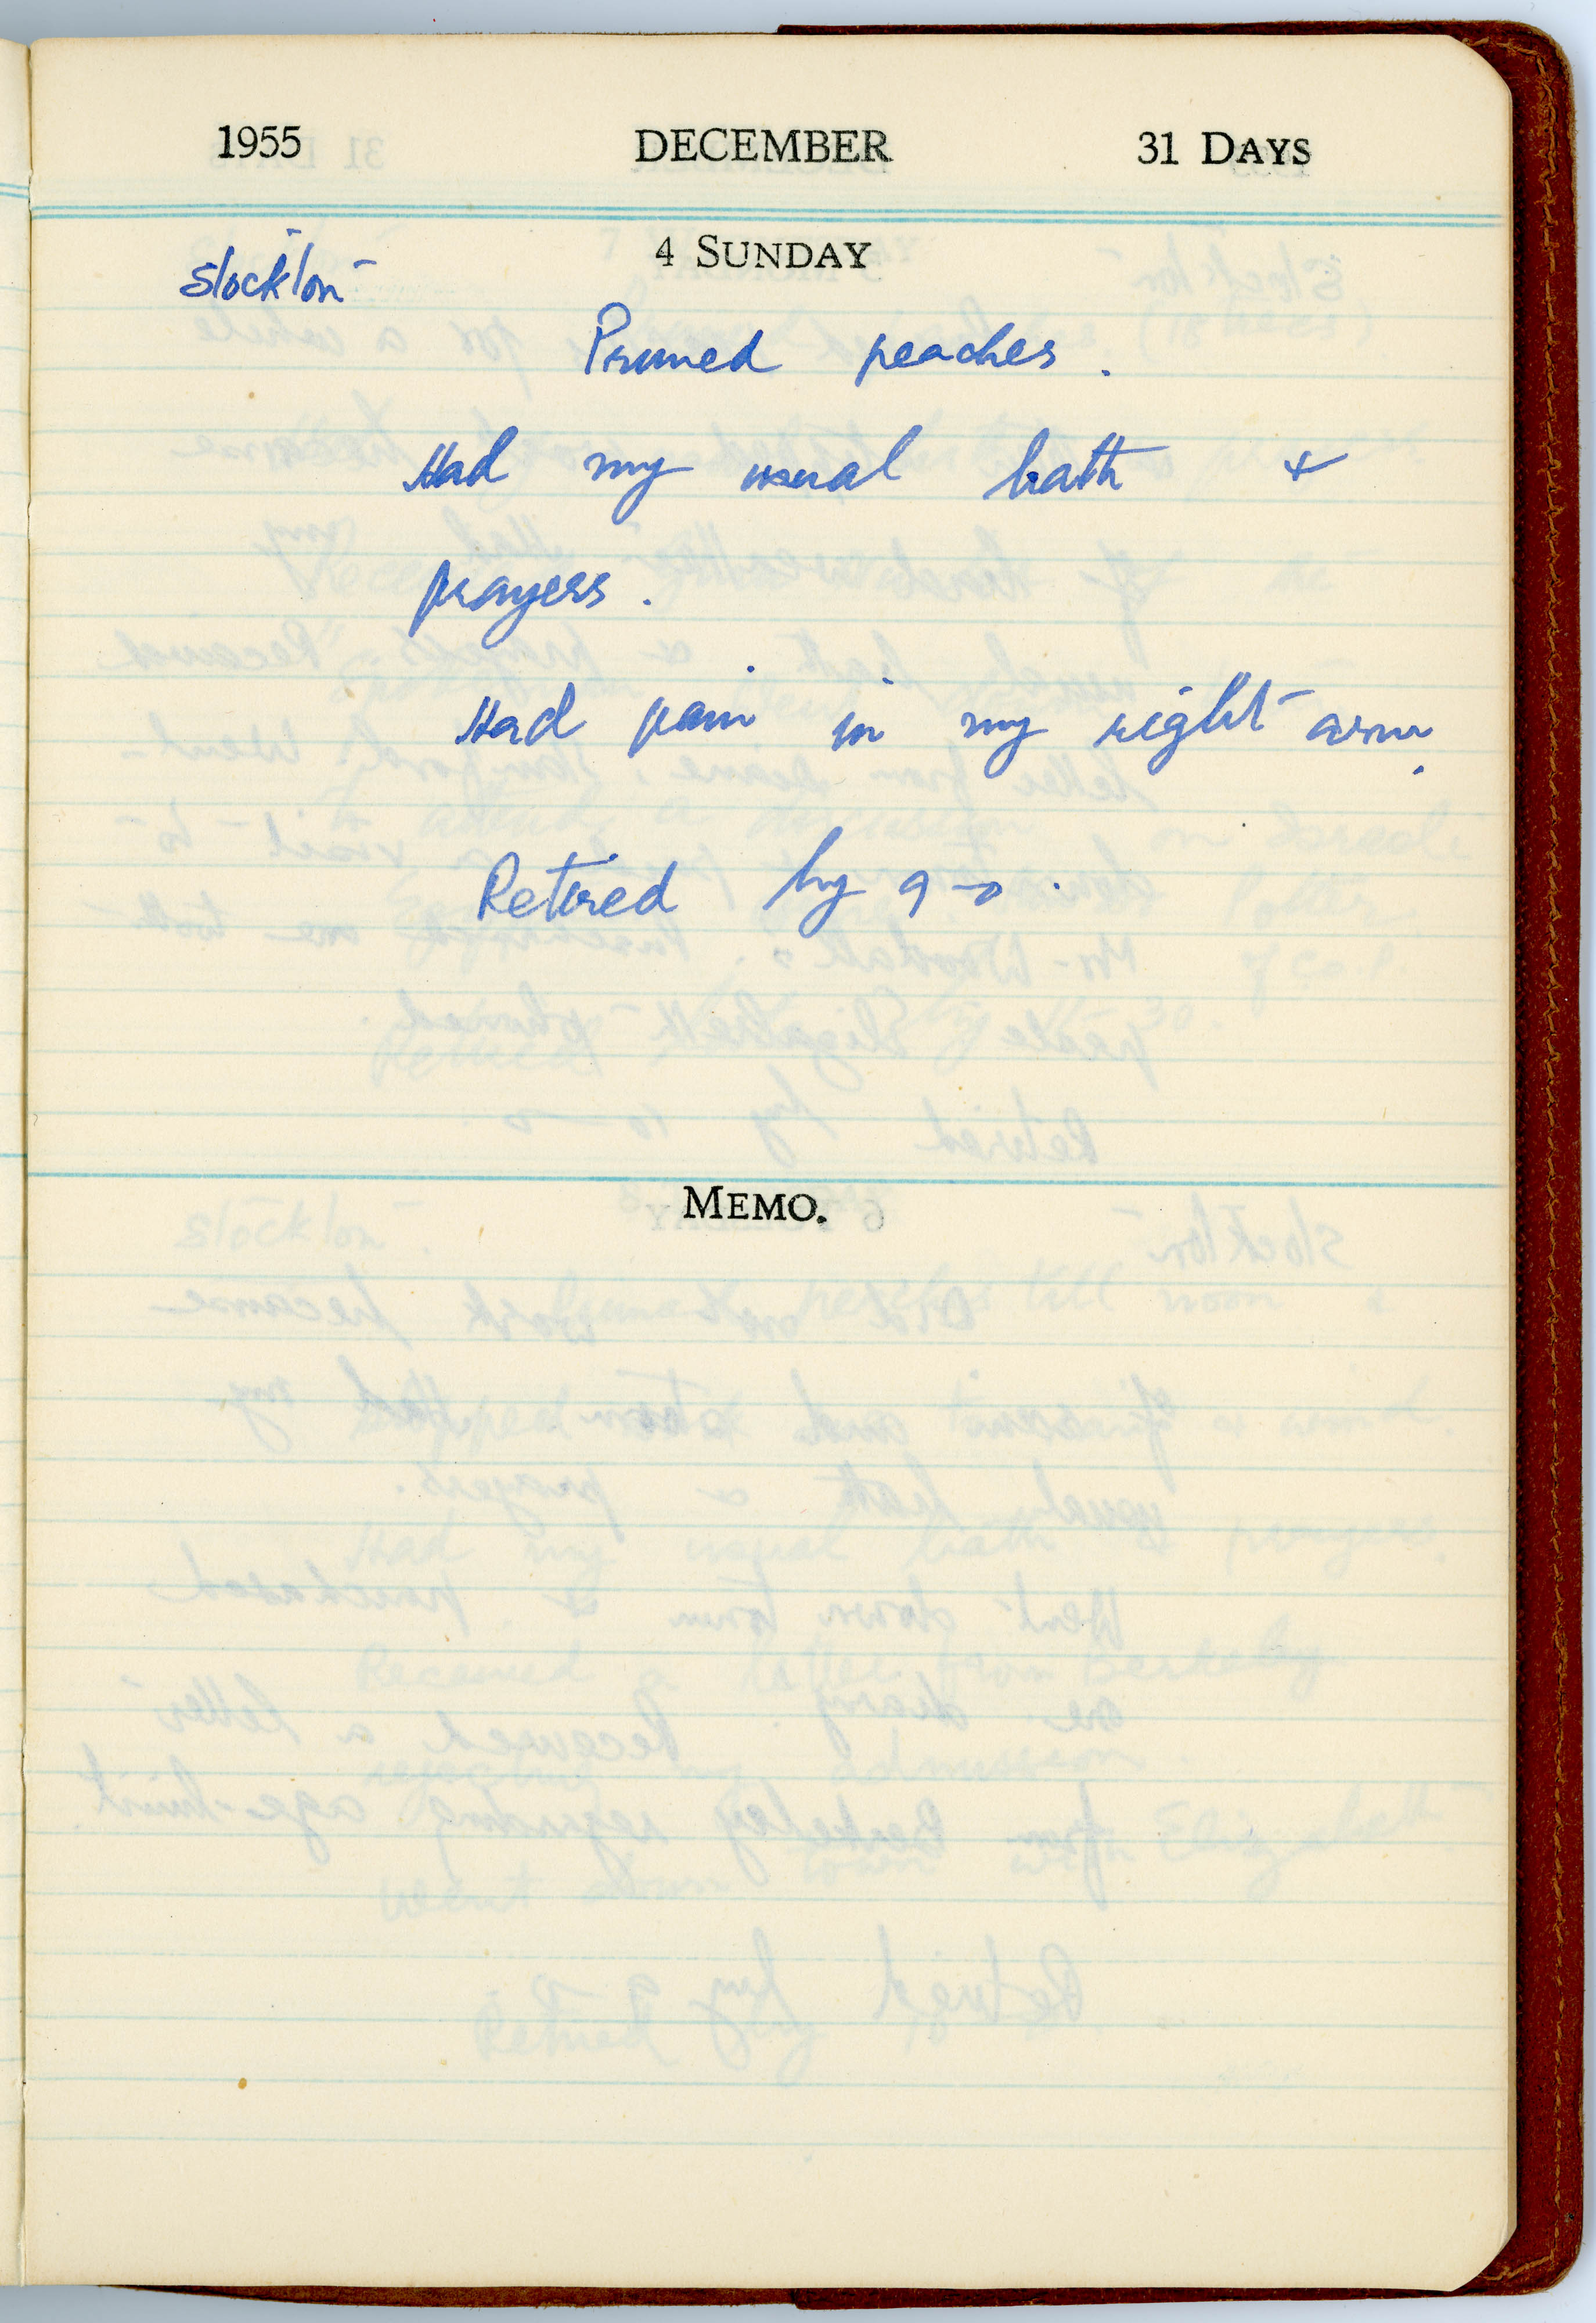 1955 DECEMBER 31 DAYS
4 SUNDAY
Stockton
Pruned peaches.
Had my usual bath &
prayers.
Had pain in my right arm.
Retired by 9-0.
MEMO.